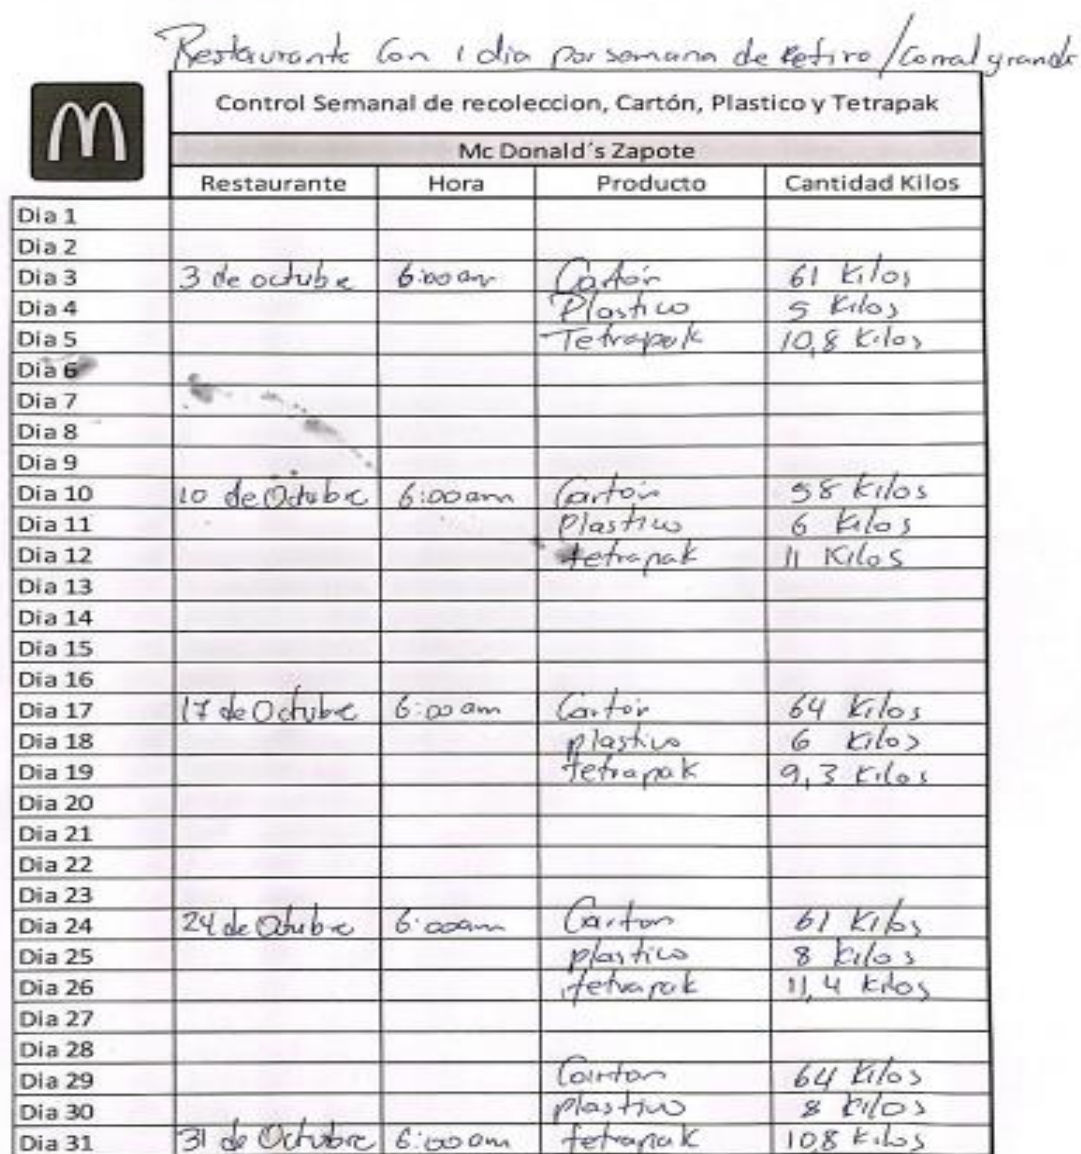 Restaurante Con 1 dia por semana de Retiro / Corral grande
Control Semanal de recoleccion, Cartón, Plastico y Tetrapak
Mc Donald´s Zapote
Restaurante Hora Producto Cantidad Kilos
Dia 1
Dia 2
Dia 3 3 de octubre 6:00 am Cartón 61 Kilos
Dia 4 Plastico 5 Kilos
Dia 5 Tetrapak 10,8 Kilos
Dia 6
Dia 7
Dia 8
Dia 9
Dia 10 10 de Octubre 6:00am Cartón 58 Kilos
Dia 11 Plastico 6 Kilos
Dia 12 tetrapak 11 Kilos
Dia 13
Dia 14
Dia 15
Dia 16
Dia 17 17 de Octubre 6:00 am Cartón 64 Kilos
Dia 18 plastico 6 Kilos
Dia 19 tetrapak 9,3 Kilos
Dia 20
Dia 21
Dia 22
Dia 23
Dia 24 24 de Octubre 6:00am Carton 61 Kilos
Dia 25 plastico 8 Kilos
Dia 26 tetrapak 11,4 Kilos
Dia 27
Dia 28
Dia 29 Carton 64 Kilos
Dia 30 plastico 8 Kilos
Dia 31 31 de Octubre 6:00 am tetrapak 10,8 Kilos